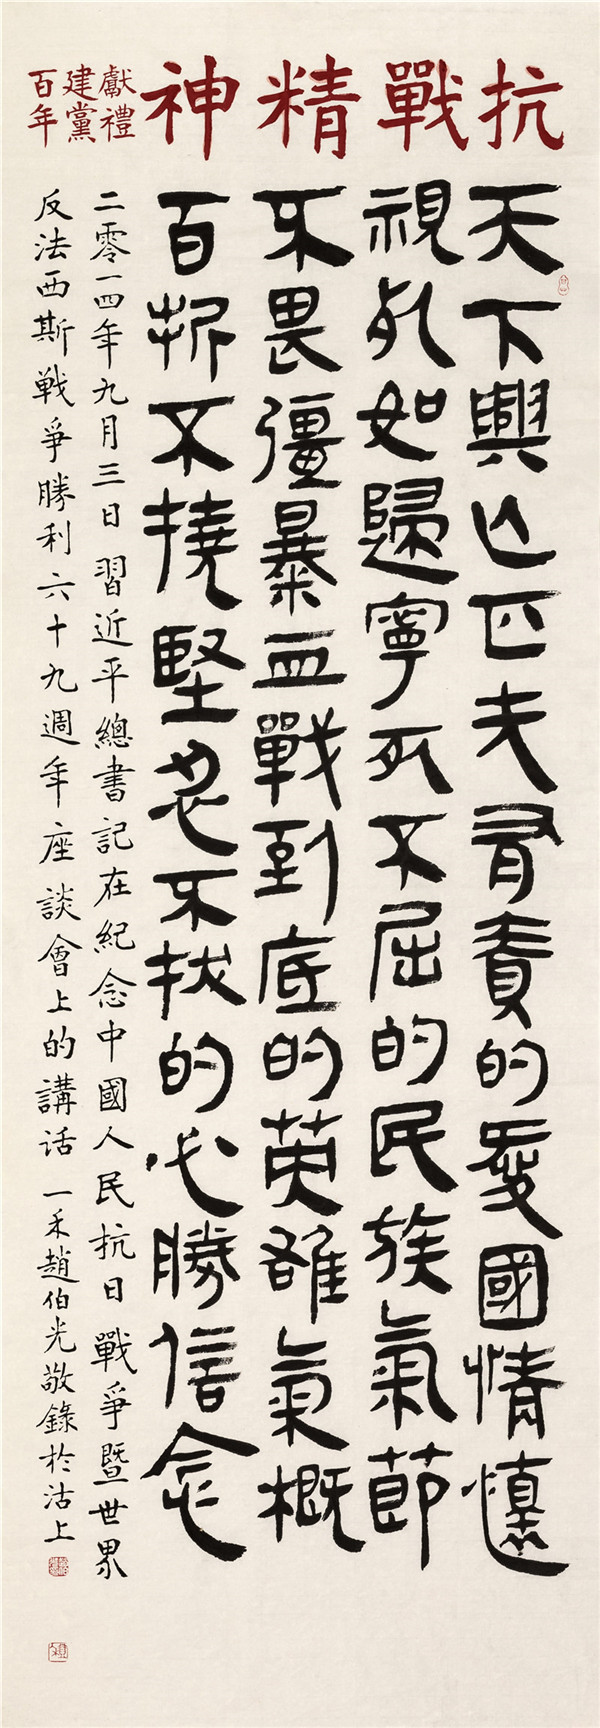 抗戰精神
天下興亡匹夫有責的愛國情懷
視死如歸寧死不屈的民族氣節
不畏彊暴血戰到底的英雄氣概
百折不撓堅忍不拔的必勝信念
獻禮
建黨
百年
二零一四年九月三日習近平總書記在紀念中國人民抗日戰爭暨世界
反法西斯戰爭勝利六十九週年座談會上的講话 一禾趙伯光敬錄於沽上